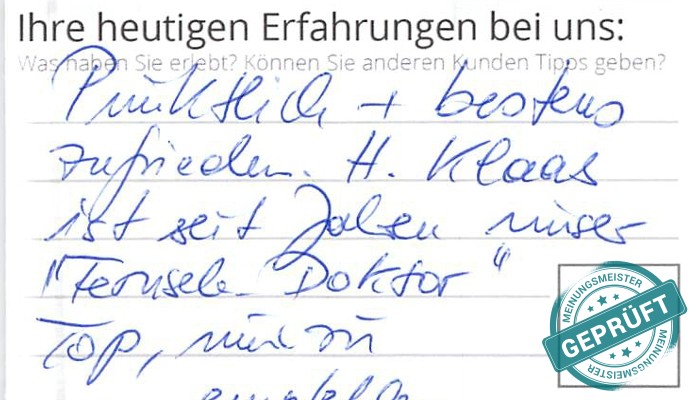 Ihre heutigen Erfahrungen bei uns:
Was haben Sie erlebt? Können Sie anderen Kunden Tipps geben?
Pünktlich + bestens
zufrieden. H. Klaas
ist seit Jahren unser
"Fernseh-Doktor"
Top, nur zu
empfehlen
MEINUNGSMEISTER
GEPRÜFT
MEINUNGSMEISTER